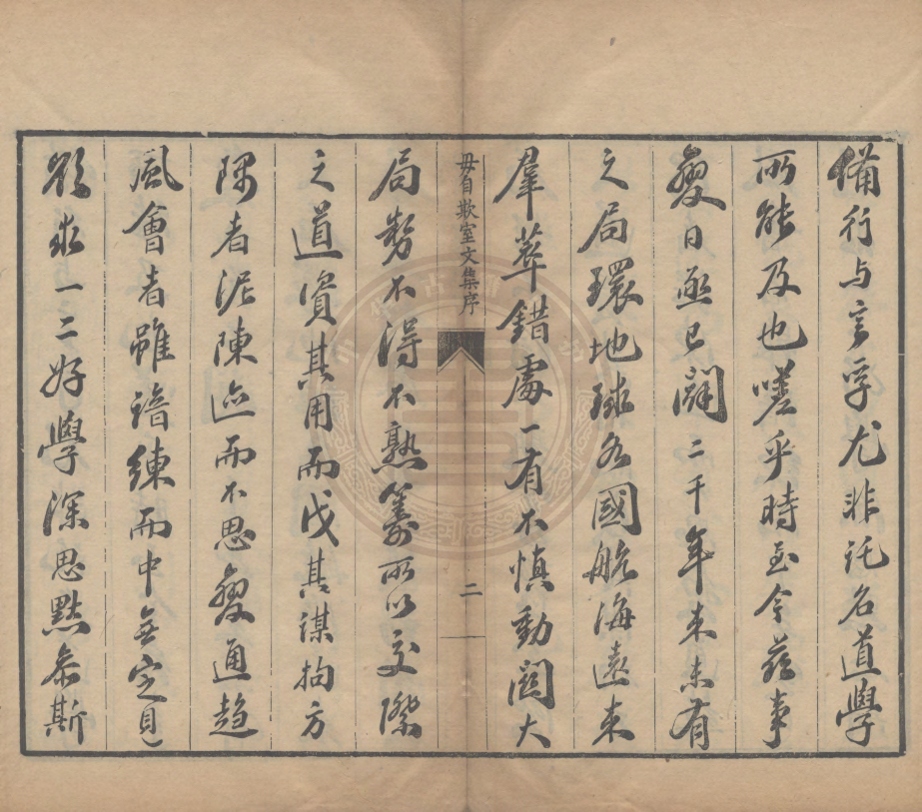 備行与言孚尤非託名道學
所能及也嗟乎時至今茲事
變日亟已開二千年来未有
之局環地球各國航海遠来
羣萃錯處一有不慎動関大
毋自欺室文集序
二
局勢不得不熟籌所以交際
之道資其用而伐其謀拘方
隅者泥陳迹而不思變通趋
風會者雖諳練而中無定見
欲求一二好學深思默参斯